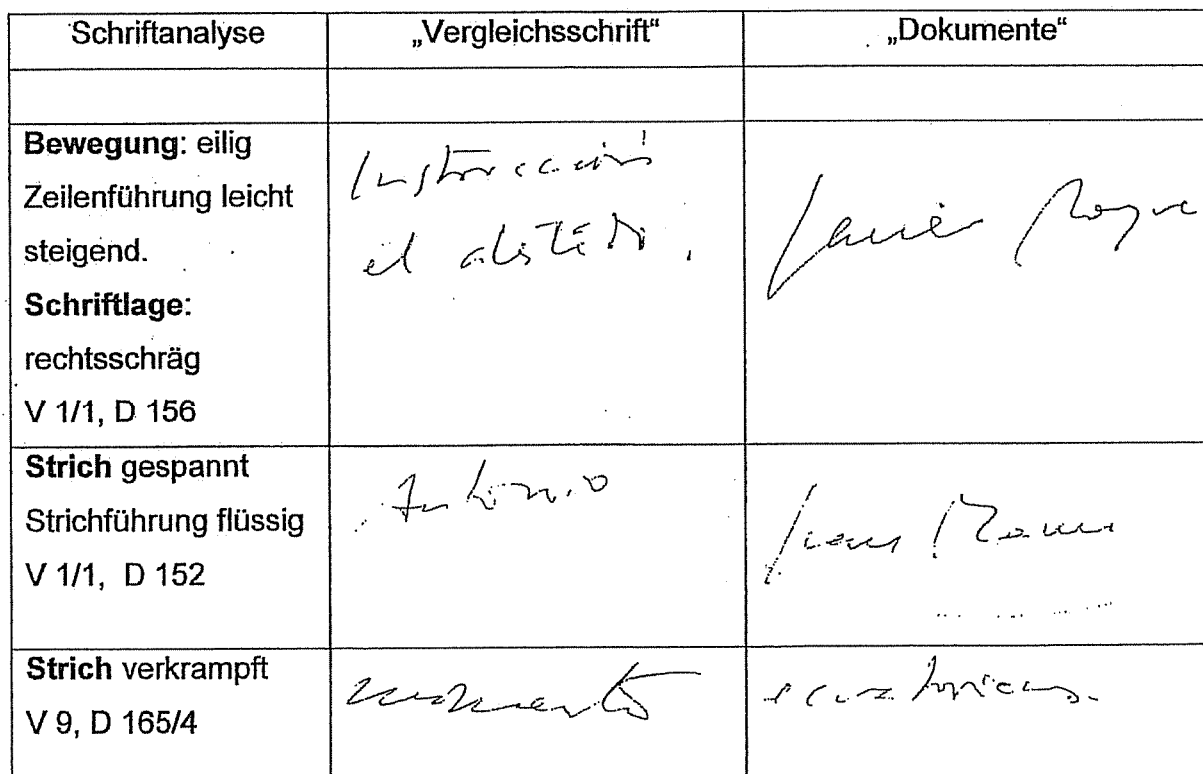 Schriftanalyse
„Vergleichsschrift“
„Dokumente“
Bewegung: eilig
Zeilenführung leicht
steigend.
Schriftlage:
rechtsschräg
V 1/1, D 156
Instrucción
el
Javier
Strich gespannt
Strichführung flüssig
V 1/1, D 152
Antonio
Juan
Strich verkrampft
V 9, D 165/4
momento